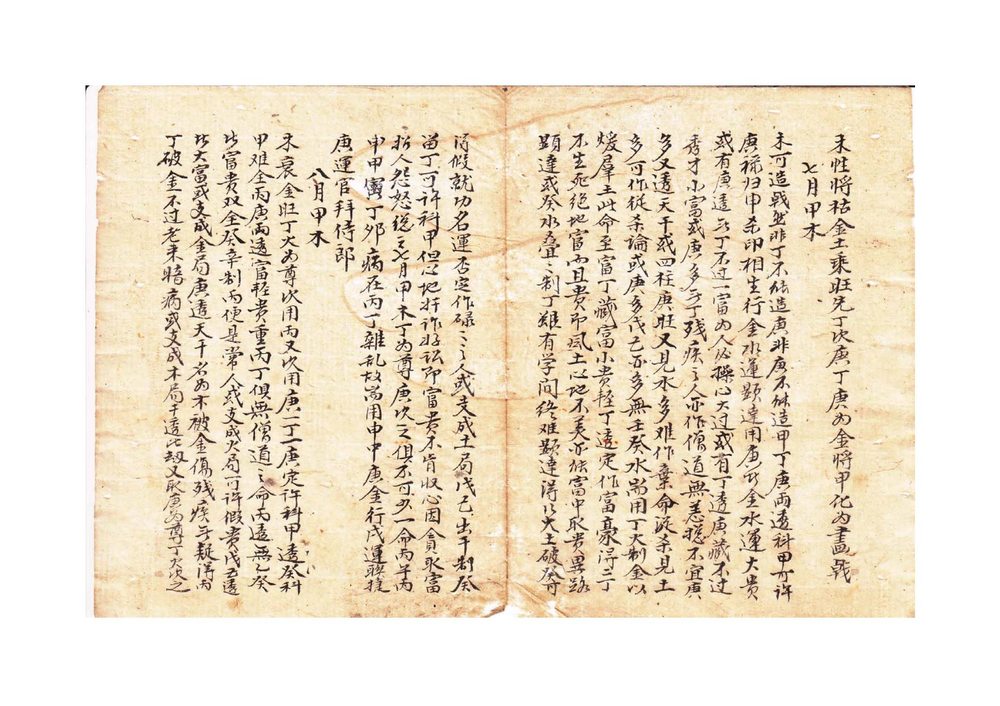 七月甲木
木性将枯金土乘旺先丁次庚丁庚为金将甲化为畫戟
木可造戟然非丁不能造庚非庚不能造甲丁庚両透科甲可許
庚禄归申杀印相生行金水運顕達用庚所金水運大貴
或有庚透无丁不过一富为人必操心太过或有丁透庚藏不过
秀才小富或庚多无丁残疾之人亦作僧道無恙稳不宜庚
多又透天干或四柱庚旺又見水多难作棄命從杀見土
多可作從杀論或庚多戊己亦多無壬癸水耑用丁火制金以
煖羣土此命至富丁藏富小貴輕丁透定作富豪得二丁
不生死絶地富而且貴即風土心地不美亦能富中取貴異路
顕達或癸水叠〻制丁雖有学問终难顕達得以火土破癸可
得假就功名運否定作碌〻之人或支成土局戊己出干制癸
留丁可許科甲但心地奸诈好訟即富貴不肯收心因貪取富
招人怨怒總之七月甲木丁为尊庚次之俱不可少一命丙午丙
申甲寅丁卯病在丙丁雜乱故耑用申中庚金行戌運聮捷
庚運官拜侍郎
八月甲木
木衰金旺丁火为尊次用丙又次用庚一丁一庚定許科甲透癸科
甲难全丙庚両透富輕貴重丙丁俱無僧道之命丙透無乙癸
此富貴双全癸辛制丙便是常人或支成火局可許假貴戊五透
此大富或支成金局庚透天干名为木被金傷残疾无疑得丙
丁破金不过老来暗病或支成木局干透比劫又取庚为尊丁火次之